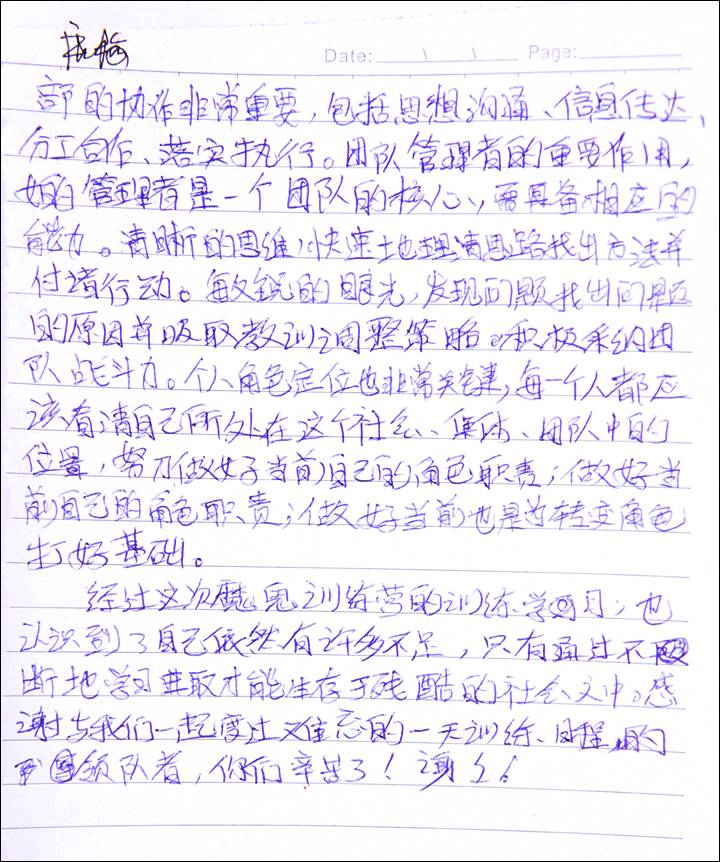 Date: \ \ Page:
部的协作非常重要，包括思想沟通、信息传达、
分工合作、落实执行。团队管理者的重要作用，
好的管理者是一个团队的核心，需具备相应的
能力。清晰的思维，快速地理清思路找出方法并
付诸行动。敏锐的眼光，发现问题找出问题
的原因并吸取教训调整策略。积极采纳团
队战斗力。个人角色定位也非常关键，每一个人都应
该看清自己所处在这个社会、集体、团队中的
位置，努力做好当前自己的角色职责；做好当
前自己的角色职责；做好当前也是为转变角色
打好基础。
经过这次魔鬼训练营的训练学习，也
认识到了自己依然有许多不足，只有通过不
断地学习进取才能生存于残酷的社会中。感
谢与我们一起度过难忘的一天训练、日程的
领队者，你们辛苦了！谢谢！